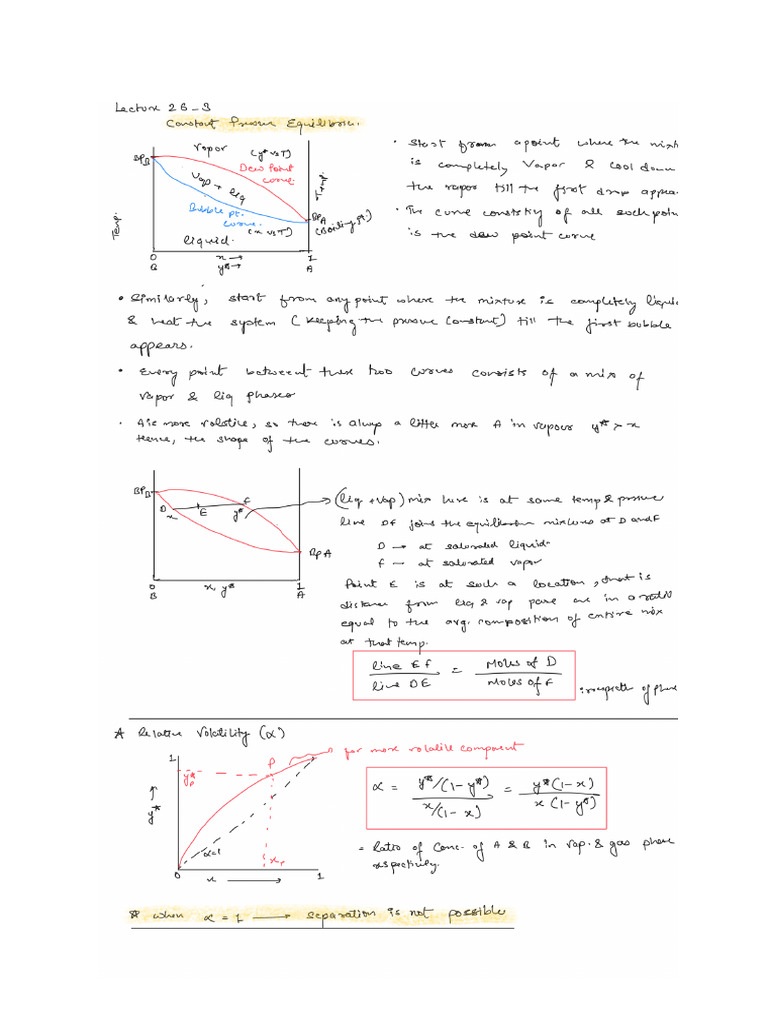 Lecture 26-3
Constant Pressure Equilibria.
BPB
vapor (y* vs T)
Dew Point
curve
Vap + liq
Bubble pt.
curve. (x vs T)
liquid.
Temp.
Temp.
BPA
(Boiling pt)
0 x → 1
B y* → A
• Start from a point where the mixt
is completely vapor & cool down
the vapor till the first drop appea
• The curve consistig of all such poin
is the dew point curve
• Similarly, start from any point where the mixture is completely liqui
& heat the system (keeping the pressure constant) till the first bubble
appears.
• Every point between these two curves consists of a mix of
vapor & liq phases
• A is more volatile, so there is always a little more A in vapour y* > x
Hence, the shape of the curves.
BPB
D E F
x y*
BPA
0 x, y* 1
B A
(liq + vap) mix here is at same temp & pressure
line DF joins the equilibrium mixtures at D and F
D → at saturated liquid
F → at saturated vapor
Point E is at such a location, that is
distance from liq & vap are in a ratio
equal to the avg. composition of entire mix
at that temp.
line EF / line DE = Moles of D / Moles of F
A Relative Volatility (α)
for more volatile component
1
y*p
P
y* →
α=1
xp
0 x → 1
α = y*/(1-y*) / x/(1-x) = y*(1-x) / x(1-y*)
= Ratio of Conc. of A & B in vap. & gas phase
respectively.
* when α = 1 → separation is not possible